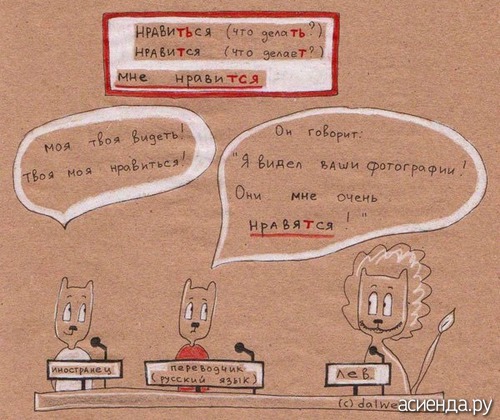 НРАВИТЬСЯ (что делаТЬ?)
НРАВИТСЯ (что делаеТ?)
мне нравиТСЯ
моя твоя видеть!
твоя моя нравиться!
Он говорит:
"Я видел ваши фотографии!
Они мне очень
НРАВЯТСЯ!"
иностранец
переводчик
(русский язык)
Лев.
(c) dalwe
асиенда.ру